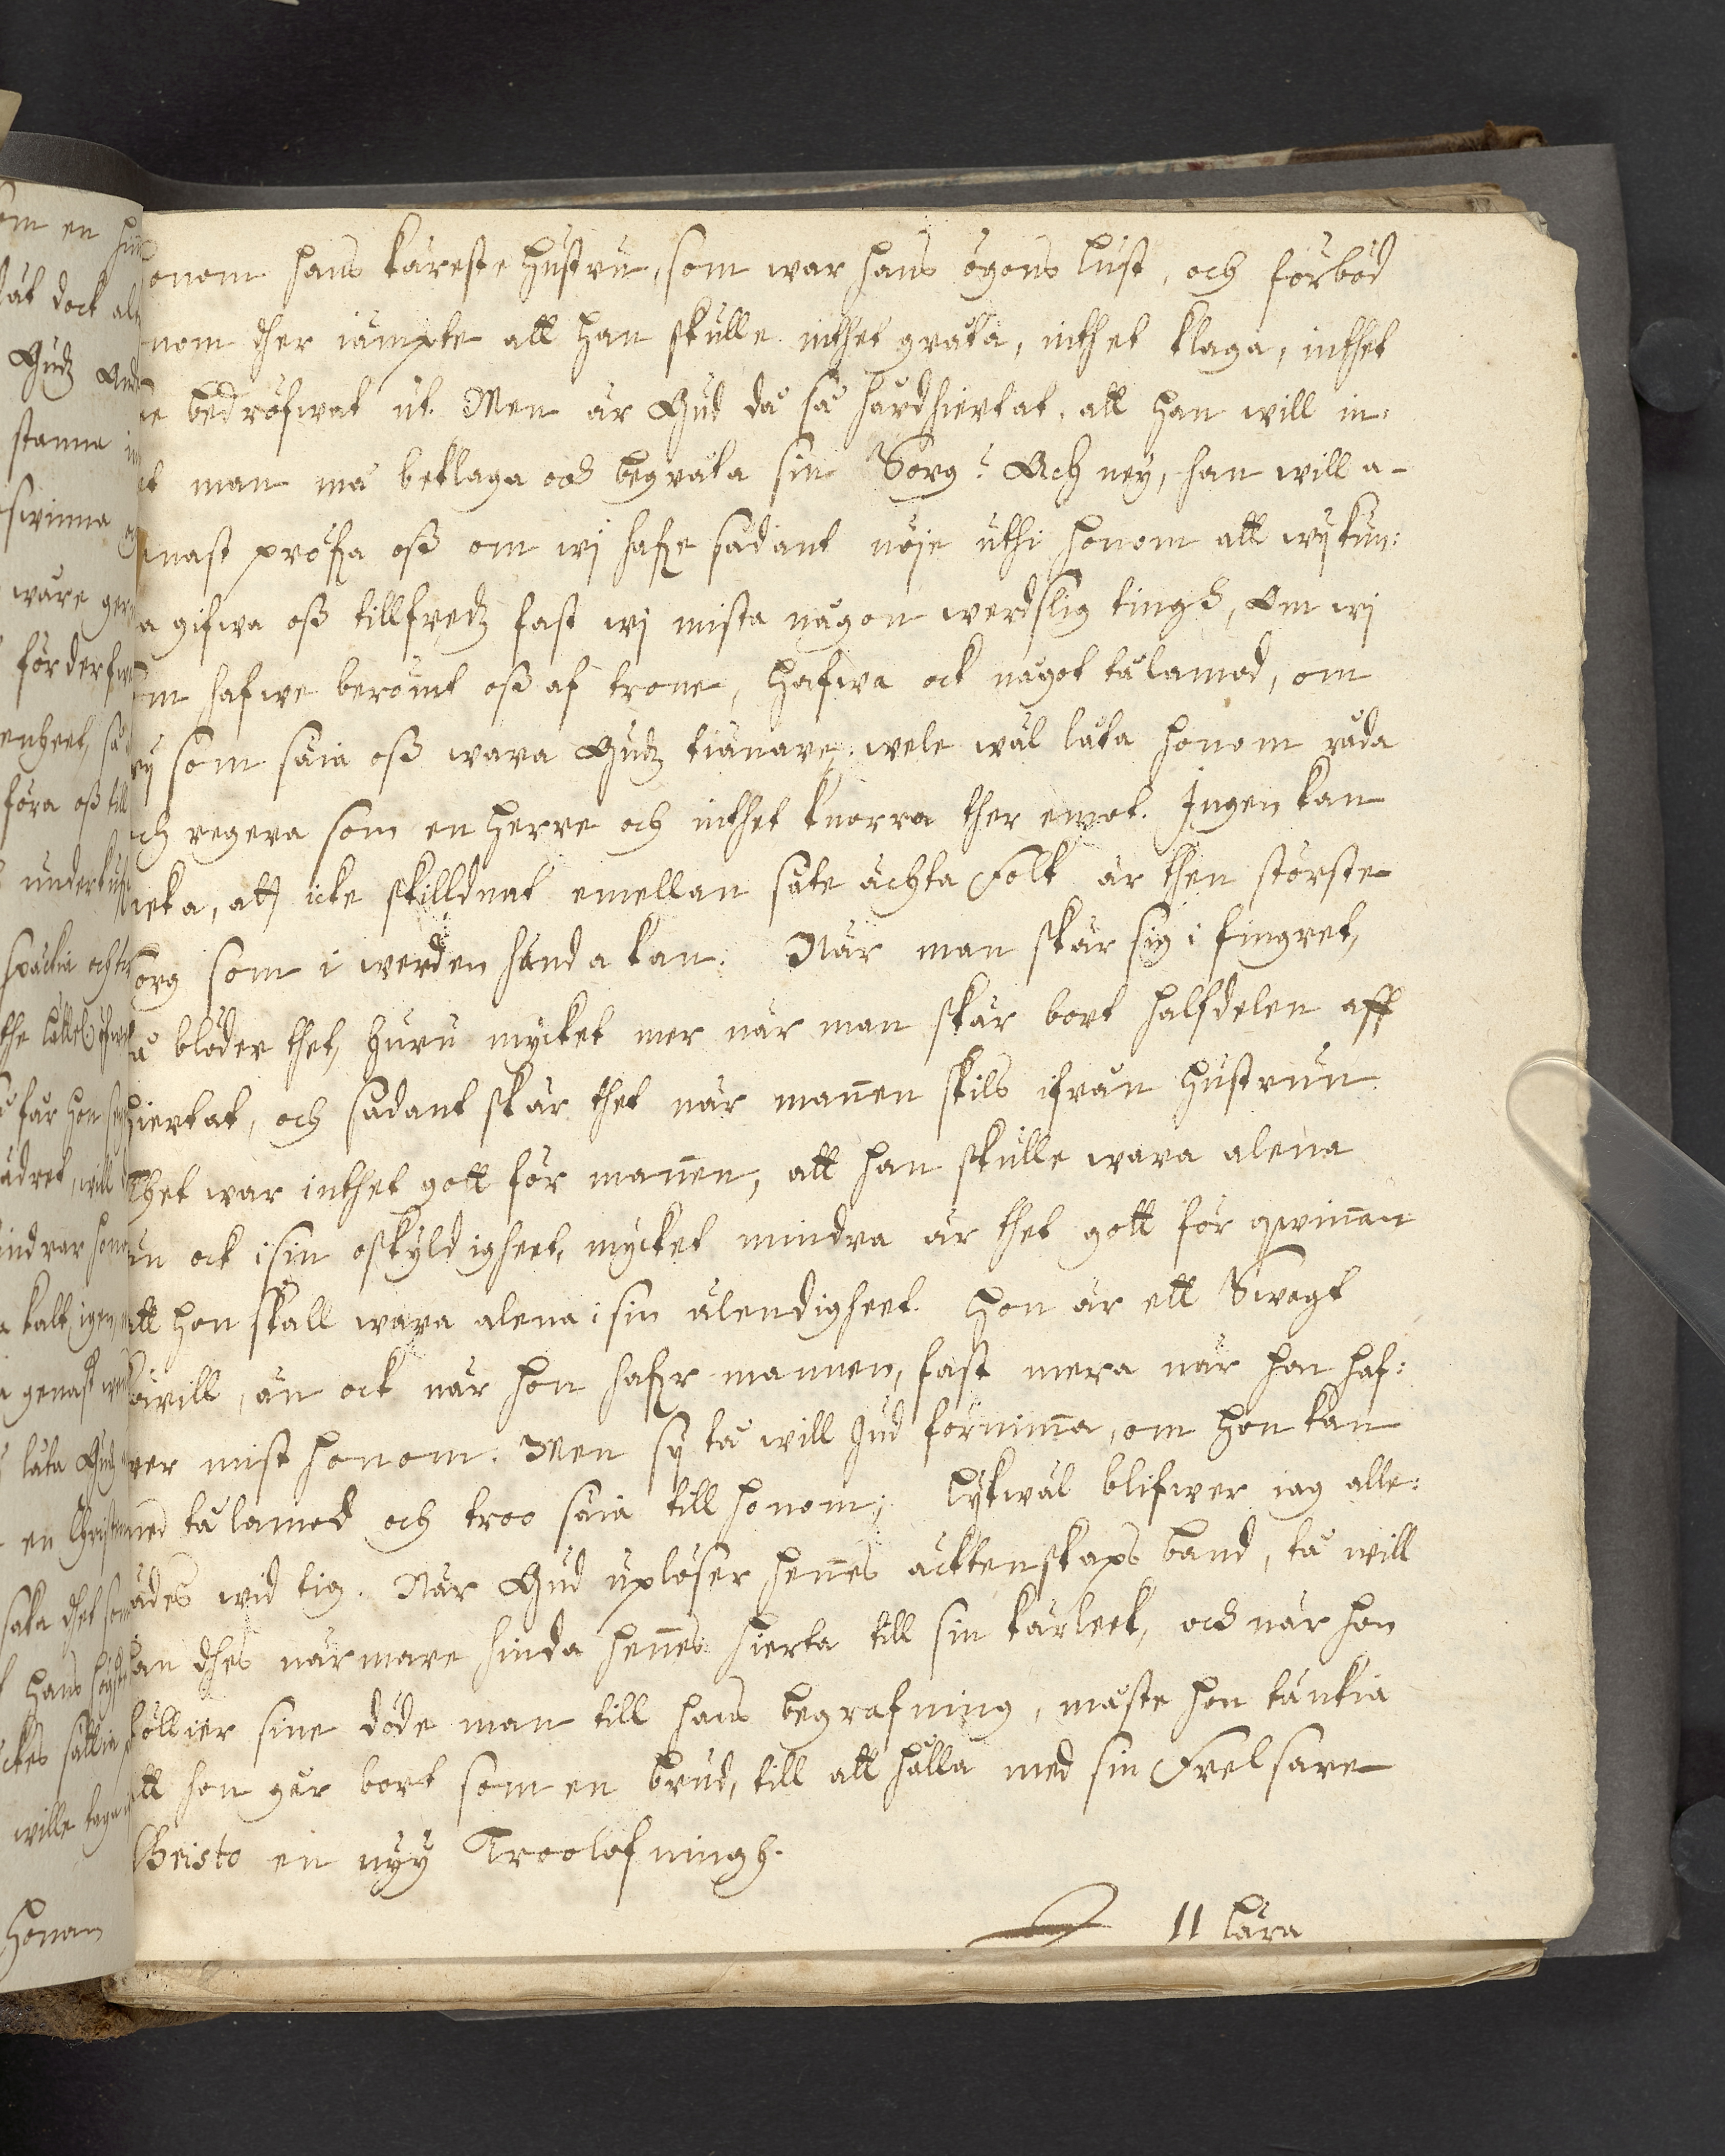 onom hans käreste hustru, som war hans ögons lust, och förböd
nom ther iämpte att han skulle inthet gråta, inthet klaga, inthet
ne bedröfwat ut. Men är Gud då så hårdhiertat, att han will in:
et man må beklaga och begråta sin Sorg? Ach ney, han will a-
nast pröfwa oß om wj hafwe sådant nöje uthi honom att wij kun:
a gifwa oß tillfredz fast wj mista någon werdslig tingh, Om wj
om hafwe berömt oß af trone, hafwa ock något tålamod, om
wij som säia oß wara Gudz tiänare, wele wäl låta honom råda
ch regera som en herre och inthet knorra ther emot. Ingen kan
neka, att icke skilldnat emellan säte ächta Folk är then störste
org som i werden hända kan. När man skär sig i fingret,
så blöder thet, huru mycket mer när man skär bort halfdelen aff
hiertat, och sådant skär thet när mannen skils ifrån hustrun.
Thet war inthet gott för mannen, att han skulle wara alena
än ock i sin oskyldigheet, mycket mindra är thet gott för qwinnan
att hon skall wara alena i sin älendigheet. hon är ett Swagt
wäill, än ock när hon hafwer mannen, fast mera när hon haf:
wer mist honom. Men sij tå will Gud förnimma, om hon kan
med tålamod och troo säia till honom; lykwäl blifwer iag alle:
ädes wid tig. När Gud uplöser hennes ächtenskaps band, tå will
han thes närmare binda hennes hierta till sin kärleek, och när hon
föllier sine döde man till hans begrafning, måste hon tänkia
att hon går bort som en brud, till att hålla med sin Frelsare
Christo en nyy Troolofningh.
11 Lära